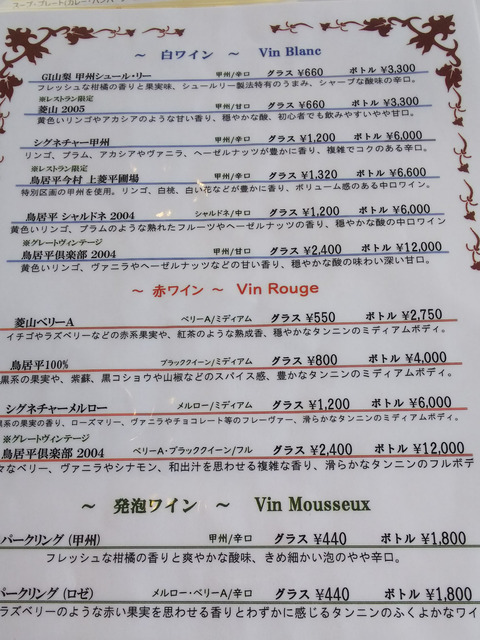 スープ・プレート(カレー・ハンバー
～ 白ワイン ～ Vin Blanc
GI山梨 甲州シュール・リー 甲州/辛口 グラス ¥660 ボトル ¥3,300
フレッシュな柑橘の香りと果実味、シュールリー製法特有のうまみ、シャープな酸味の辛口。
※レストラン限定
菱山 2005 甲州/甘口 グラス ¥660 ボトル ¥3,300
黄色いリンゴやアカシアのような甘い香り、穏やかな酸、初心者でも飲みやすいやや甘口。
シグネチャー甲州 甲州/辛口 グラス ¥1,200 ボトル ¥6,000
リンゴ、プラム、アカシアやヴァニラ、ヘーゼルナッツが豊かに香り、複雑でコクのある辛口。
※レストラン限定
鳥居平今村 上菱平圃場 甲州/辛口 グラス ¥1,320 ボトル ¥6,600
特別区画の甲州を使用。リンゴ、白桃、白い花などが豊かに香り、ボリューム感のある中口ワイン。
鳥居平 シャルドネ 2004 シャルドネ/中口 グラス ¥1,200 ボトル ¥6,000
黄色いリンゴ、プラムのような熟れたフルーツやヘーゼルナッツの香り、穏やかな酸の中口ワイン
※グレートヴィンテージ
鳥居平倶楽部 2004 甲州/甘口 グラス ¥2,400 ボトル ¥12,000
黄色いリンゴ、ヴァニラやヘーゼルナッツなどの甘い香り、穏やかな酸の味わい深い甘口。
～ 赤ワイン ～ Vin Rouge
菱山ベリーA ベリーA/ミディアム グラス ¥550 ボトル ¥2,750
イチゴやラズベリーなどの赤系果実や、紅茶のような熟成香、穏やかなタンニンのミディアムボディ。
鳥居平100% ブラッククイーン/ミディアム グラス ¥800 ボトル ¥4,000
黒系の果実や、紫蘇、黒コショウや山椒などのスパイス感、豊かなタンニンのミディアムボディ。
シグネチャーメルロー メルロー/ミディアム グラス ¥1,200 ボトル ¥6,000
黒系の果実の香り、ローズマリー、ヴァニラやチョコレート等のフレーヴァー、滑らかなタンニンのミディアムボディ。
※グレートヴィンテージ
鳥居平倶楽部 2004 ベリーA・ブラッククイーン/フル グラス ¥2,400 ボトル ¥12,000
々なベリー、ヴァニラやシナモン、和出汁を思わせる複雑な香り、滑らかなタンニンのフルボデ
～ 発泡ワイン ～ Vin Mousseux
パークリング (甲州) 甲州/辛口 グラス ¥440 ボトル ¥1,800
フレッシュな柑橘の香りと爽やかな酸味、きめ細かい泡のやや辛口。
パークリング (ロゼ) メルロー・ベリーA/辛口 グラス ¥440 ボトル ¥1,800
ラズベリーのような赤い果実を思わせる香りとわずかに感じるタンニンのふくよかなワイ